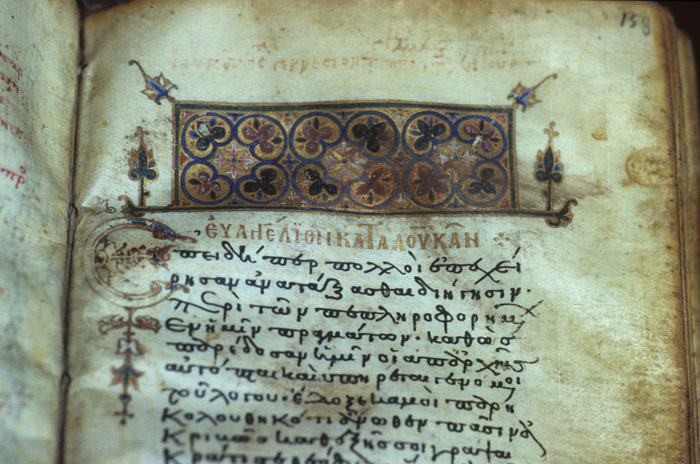 158
ἐυαγγελιον κατα λουκαν
Ἐπειδή περ πολλοὶ ἐπεχεί
ρησαν ἀνατάξασθαι διήγησιν·
περὶ τῶν πεπληροφορημ
ἐν ἡμῖν πραγμάτων· καθὼς
παρέδοσαν ἡμῖν οἱ ἀπαρχῆς
αὐτόπται καὶ ὑπηρέται γενόμοι
τοῦ λόγου· ἔδοξε καμοὶ παρη
κολουθηκότι ἄνωθεν πᾶσιν ἀ
κριβῶς καθεξῆς σοι γράψαι